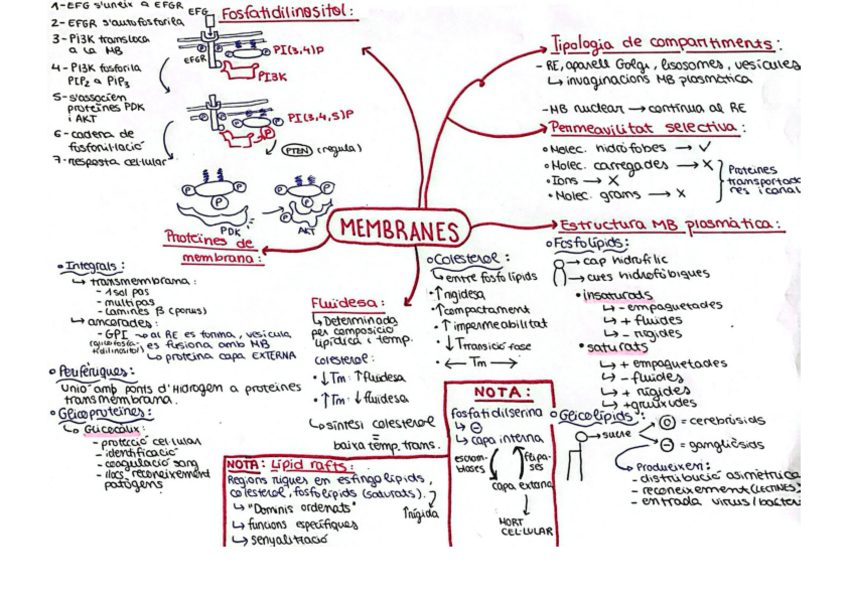 1-EFG s'uneix a EFGR
2-EFGR s'autofosforila
3-Pi3K transloca
a la MB
4-Pi3K fosforila
PiP2 a PiP3
5-s'associen
proteïnes PDK
i AKT
6-cadena de
fosforilació
7-resposta cel·lular
Fosfatidilinositol:
EFG
EFGR
PI(3,4)P
PI3K
PI(3,4,5)P
PTEN (regula)
PDK
AKT
MEMBRANES
Tipologia de compartiments:
- RE, aparell Golgi, lisosomes, vesícules
↳ invaginacions MB plasmàtica
-MB nuclear → contínua al RE
Permeavilitat selectiva:
•Molec. hidròfobes → ✓
•Molec. carregades → X
•Ions → X
•Molec. grans → X
Proteïnes
transportado
res i canal
Estructura MB plasmàtica:
•Fosfolípids:
→ cap hidrofílic
→ cues hidrofòbiques
•insaturats
↳ - empaquetades
↳ + fluides
↳ - rígides
•saturats
↳ + empaquetades
↳ - fluides
↳ + rígides
↳ +gruixudes
•Glicolípids:
→ sucre
= cerebròsids
⊖ = gangliòsids
Produeixen:
- distribució asimètrica
- reconeixement (LECTINES)
- entrada virus/bacteri
Proteïnes de
membrana:
•Integrals:
↳ transmembrana:
- 1 sol pas
- multipas
- làmines β (porus)
↳ ancorades:
- GPI → al RE es forma, vesícula
es fusiona amb MB
↳ proteïna capa EXTERNA
•Perifèriques:
Unió amb ponts d'Hidrogen a proteïnes
transmembrana.
•Glicoproteïnes:
↳ Glicocàlix:
- protecció cel·lular
- identificació
- coagulació sang
- llocs reconeixement
patògens
Fluïdesa:
↳ Determinada
per composició
lipídica i temp.
colesterol:
•↓Tm ↑fluïdesa
•↑Tm ↓fluïdesa
↳ síntesi colesterol
=
baixa temp. trans.
•Colesterol:
↳ entre fosfolípids
•↑rigidesa
•↑compactament
•↑ impermeabilitat
•↓Ttransició fase
•← Tm →
NOTA:
fosfatidilserina
↳ ⊖
↳ capa interna
escram-
blases
flipa-
ses
capa externa
MORT
CEL·LULAR
NOTA: Lipid rafts:
Regions riques en esfingolípids,
colesterol, fosfolípids (saturats).
↳ "Dominis ordenats"
↑rígida
↳ funcions específiques
↳ senyalització